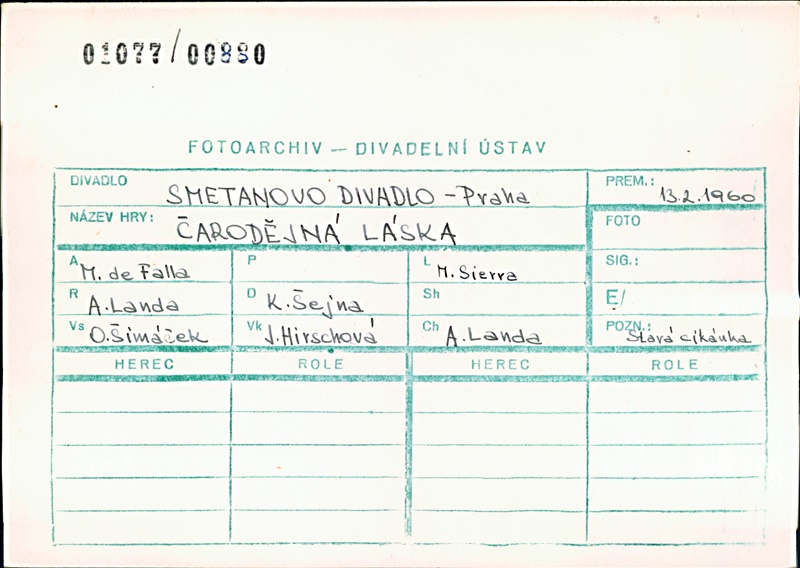 01077/00880
FOTOARCHIV — DIVADELNÍ ÚSTAV
DIVADLO SMETANOVO DIVADLO - Praha PREM.: 13.2.1960
NÁZEV HRY: ČARODĚJNÁ LÁSKA FOTO
A M. de Falla P L M. Sierra SIG.:
R A. Landa D K. Šejna Sh E/
Vs O. Šimáček Vk J. Hirschová Ch A. Landa POZN.: Stará cikánka
HEREC ROLE HEREC ROLE